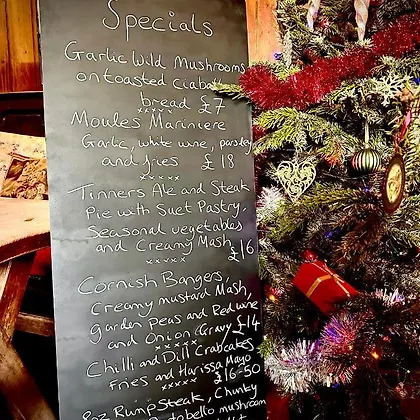 Specials
Garlic Wild Mushrooms
on toasted ciabatta
bread £7
xxxxx
Moules Mariniere
Garlic, white wine, parsley
and fries £18
xxxxx
Tinners Ale and Steak
Pie with Suet Pastry,
Seasonal vegetables
and Creamy Mash £16
xxxxx
Cornish Bangers,
Creamy mustard Mash,
garden Peas and Red wine
and Onion Gravy £14
xxxxx
Chilli and Dill Crabcakes
Fries and Harissa Mayo
xxxxx £16-50
8oz Rump Steak, Chunky
mushroom